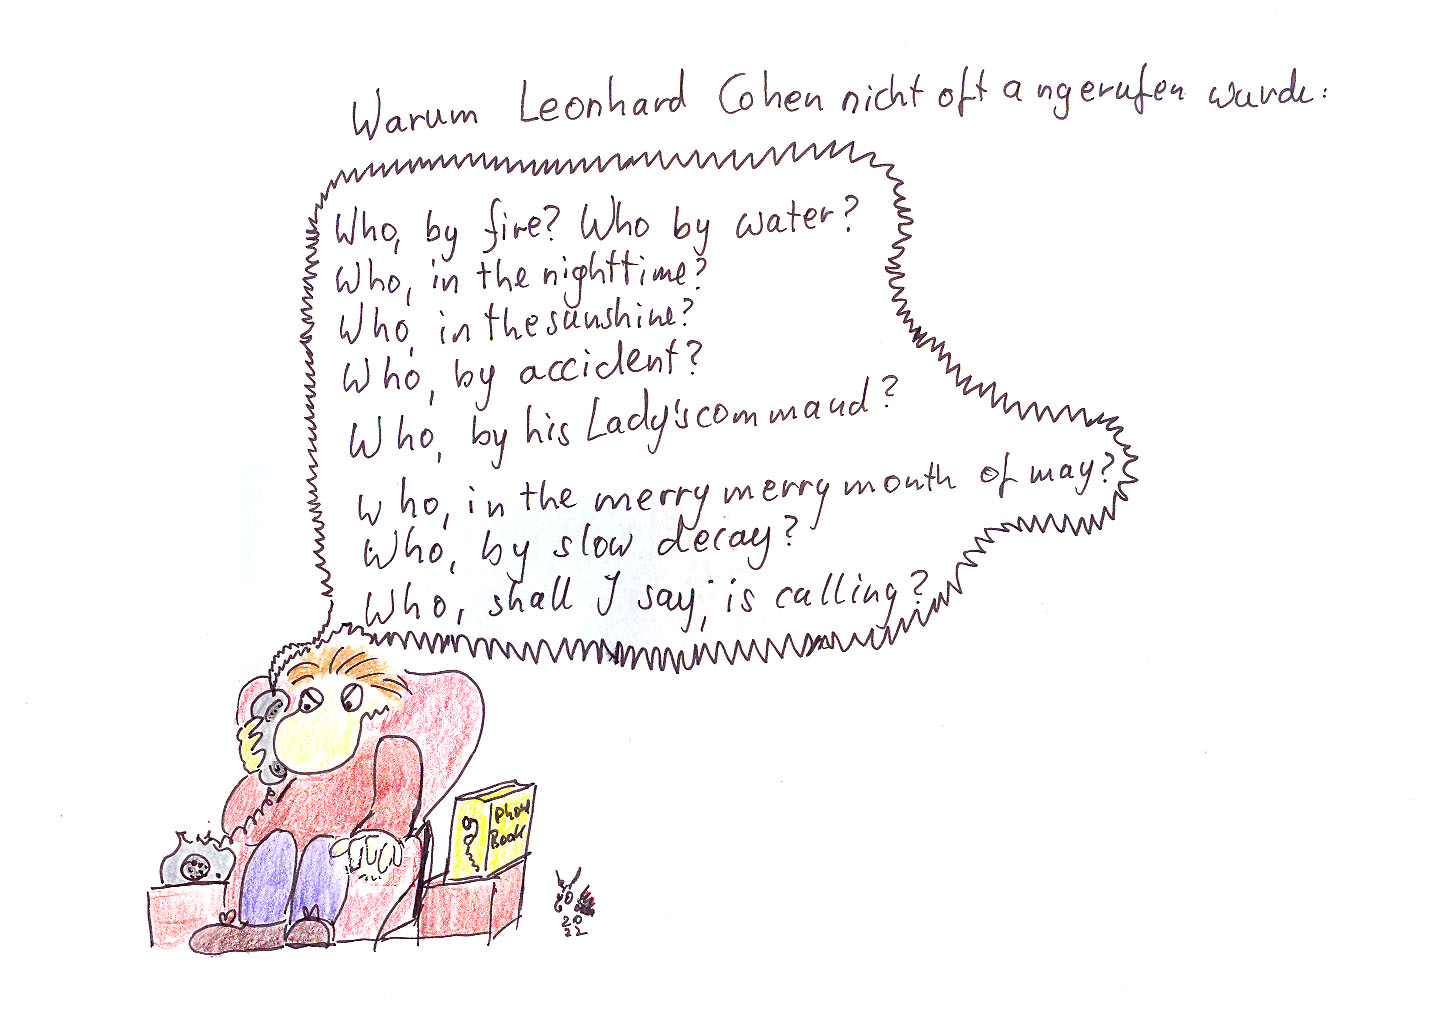 Warum Leonhard Cohen nicht oft angerufen wurde:
Who, by fire? Who by water?
Who, in the nighttime?
Who, in the sunshine?
Who, by accident?
Who, by his Lady's command?
Who, in the merry merry month of may?
Who, by slow decay?
Who, shall I say, is calling?
Phone
Book
20
22